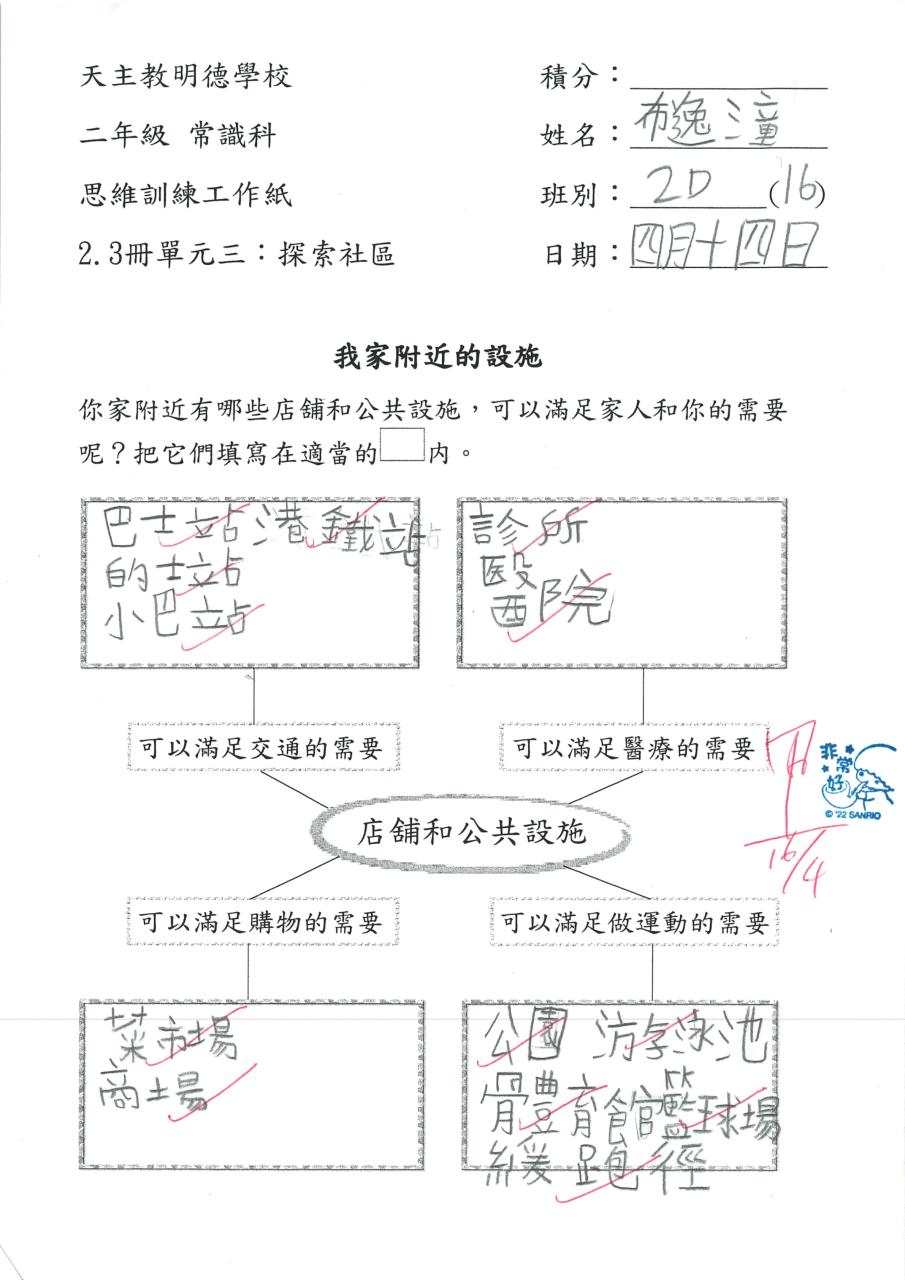 天主教明德學校 積分：
二年級 常識科 姓名：布逸潼
思維訓練工作紙 班別：2D (16)
2.3冊單元三：探索社區 日期：四月十四日
我家附近的設施
你家附近有哪些店舖和公共設施，可以滿足家人和你的需要
呢？把它們填寫在適當的□內。
巴士站 港鐵站
的士站
小巴站
診所
醫院
可以滿足交通的需要
可以滿足醫療的需要
甲
16/4
非常好
© '22 SANRIO
店舖和公共設施
可以滿足購物的需要
可以滿足做運動的需要
菜市場
商場
公園 游泳池
體育館 籃球場
緩跑徑